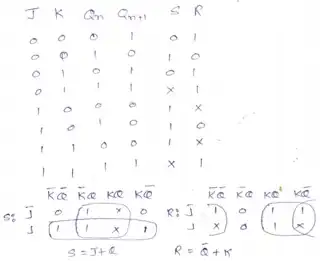 J K Qn Qn+1 S R
0 0 0 1 0 1
0 0 1 0 1 0
0 1 0 1 0 1
0 1 1 1 x 1
1 0 0 0 1 x
1 0 1 0 1 0
1 1 0 0 1 x
1 1 1 1 x 1
K̄Q̄ K̄Q KQ KQ̄ K̄Q̄ K̄Q KQ KQ̄
S: J̄ 0 1 x 0 R: J̄ 1 0 1 1
J 1 1 x 1 J x 0 1 x
S = J + Q R = Q̄ + K